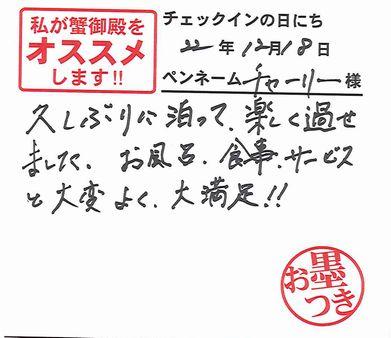 私が蟹御殿を
オススメ
します!!
チェックインの日にち
22年12月18日
ペンネーム チャーリー様
久しぶりに泊って、楽しく過せ
ました、お風呂、食事、サービス
と大変よく、大満足!!
お墨つき